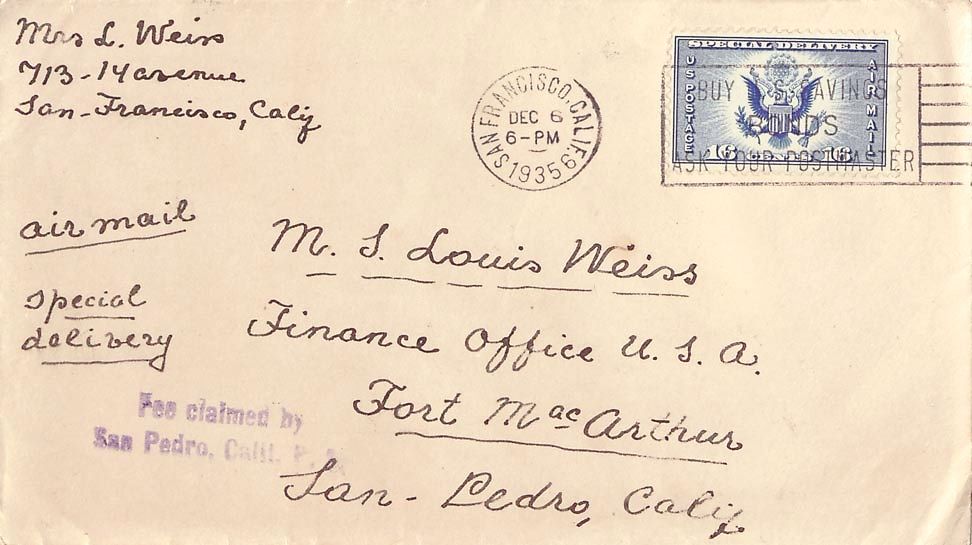 Mrs L. Weiss
713-14 avenue
San-Francisco, Calif
SAN FRANCISCO, CALIF.
DEC 6
6-PM
1935
6
SPECIAL DELIVERY
U S POSTAGE
AIR MAIL
16 CENTS 16
BUY U.S. SAVINGS
BONDS
ASK YOUR POSTMASTER
air mail
special
delivery
M. S. Louis Weiss
Finance Office U. S. A.
Fort MacArthur
San-Pedro, Calif
Fee claimed by
San Pedro, Calif.